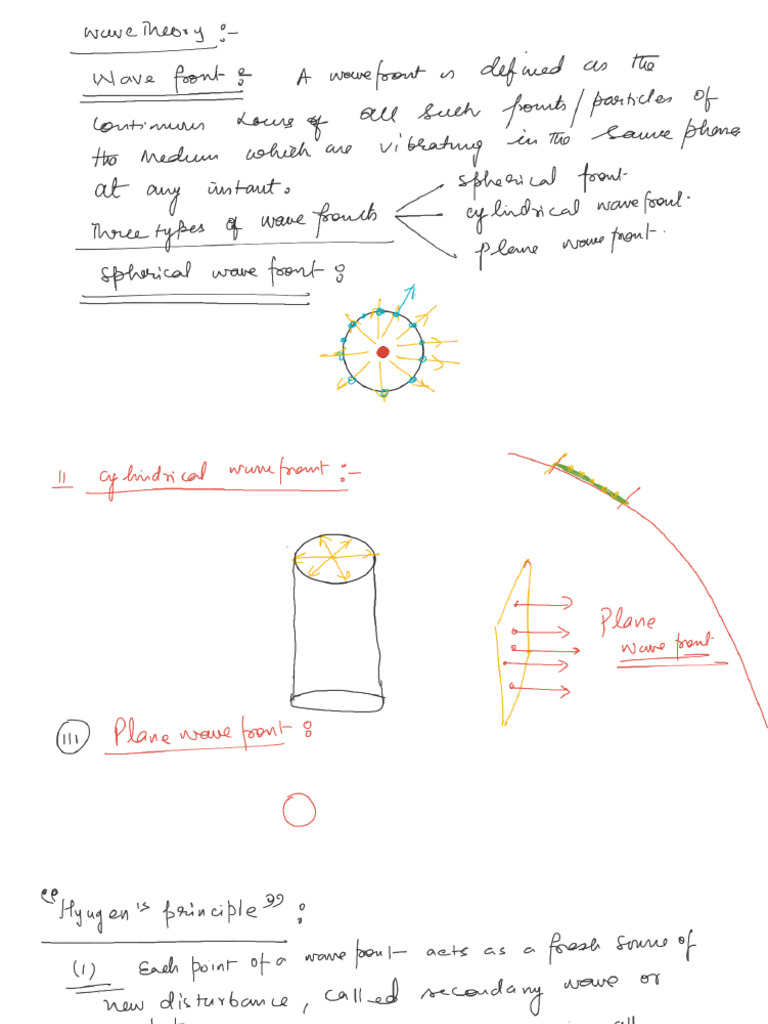 Wave Theory :-
Wave front : A wavefront is defined as the
continuous Locus of all such points/particles of
the Medium which are vibrating in the same phase
at any instant.
Three types of wave fronts
spherical front.
cylindrical wavefront.
plane wavefront.
Spherical wave front :
II cylindrical wavefront :-
Plane
wavefront
III Plane wavefront :
"Hyugen's principle" :
(1) Each point of a wavefront acts as a fresh source of
new disturbance, called secondary wave or
all